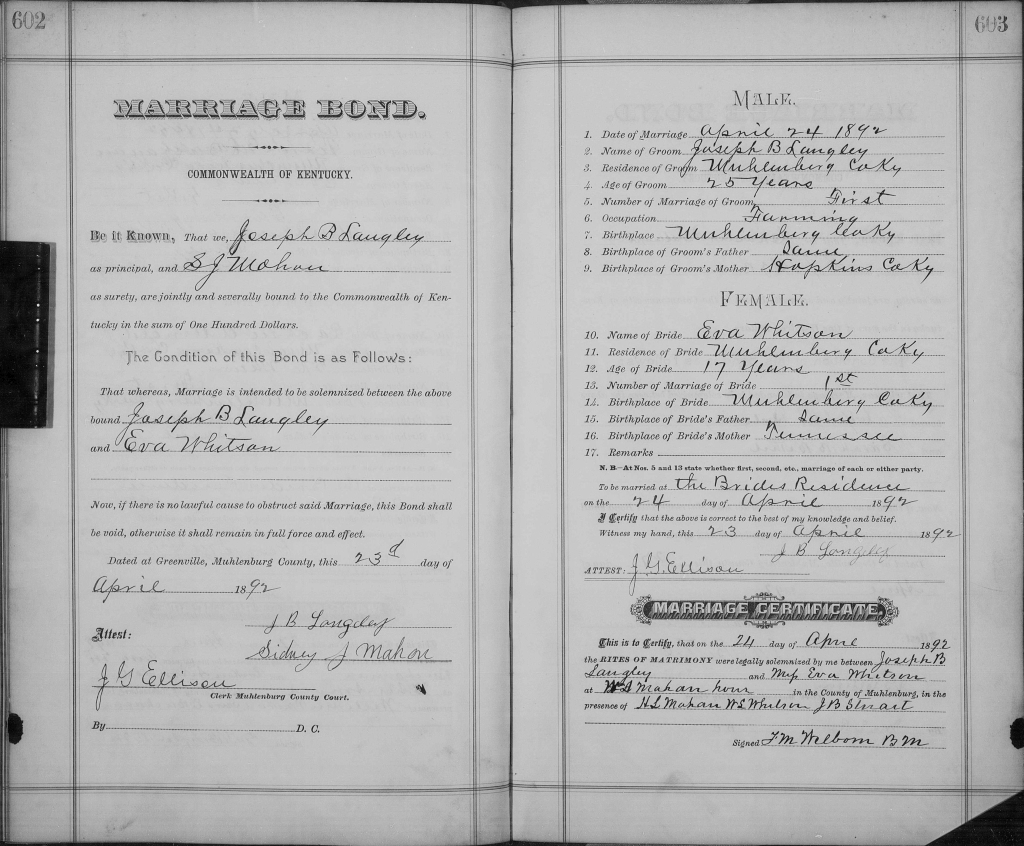 602
MARRIAGE BOND.
COMMONWEALTH OF KENTUCKY.
Be it Known, That we, Joseph B Langley
as principal, and S J Mahon
as surety, are jointly and severally bound to the Commonwealth of Ken-
tucky in the sum of One Hundred Dollars.
The Condition of this Bond is as Follows:
That whereas, Marriage is intended to be solemnized between the above
bound Joseph B Langley
and Eva Whitson
Now, if there is no lawful cause to obstruct said Marriage, this Bond shall
be void, otherwise it shall remain in full force and effect.
Dated at Greenville, Muhlenburg County, this 23d day of
April 1892
J B Longley
Attest:
Sidney J Mahon
J G Ellison
Clerk Muhlenburg County Court.
By D. C.
603
MALE.
1. Date of Marriage April 24 1892
2. Name of Groom Joseph B Langley
3. Residence of Groom Muhlemburg Co Ky
4. Age of Groom 25 Years
5. Number of Marriage of Groom First
6. Occupation Farming
7. Birthplace Muhlemburg Co Ky
8. Birthplace of Groom's Father Same
9. Birthplace of Groom's Mother Hopkins Co Ky
FEMALE.
10. Name of Bride Eva Whitson
11. Residence of Bride Muhlemburg Co Ky
12. Age of Bride 17 Years
13. Number of Marriage of Bride 1st
14. Birthplace of Bride Muhlemburg Co Ky
15. Birthplace of Bride's Father Same
16. Birthplace of Bride's Mother Tennessee
17. Remarks
N. B.—At Nos. 5 and 13 state whether first, second, etc., marriage of each or either party.
To be married at the Brides Residence
on the 24 day of April 1892
I Certify that the above is correct to the best of my knowledge and belief.
Witness my hand, this 23 day of April 1892
J B Longley
ATTEST: J G Ellison
MARRIAGE CERTIFICATE.
This is to Certify, that on the 24 day of April 1892
the RITES OF MATRIMONY were legally solemnised by me between Joseph B
Langley and Miss Eva Whitson
at Mahan in the County of Muhlenburg, in the
presence of H L Mahan W L Whitson J B Stuart
Signed F M Welborn B M